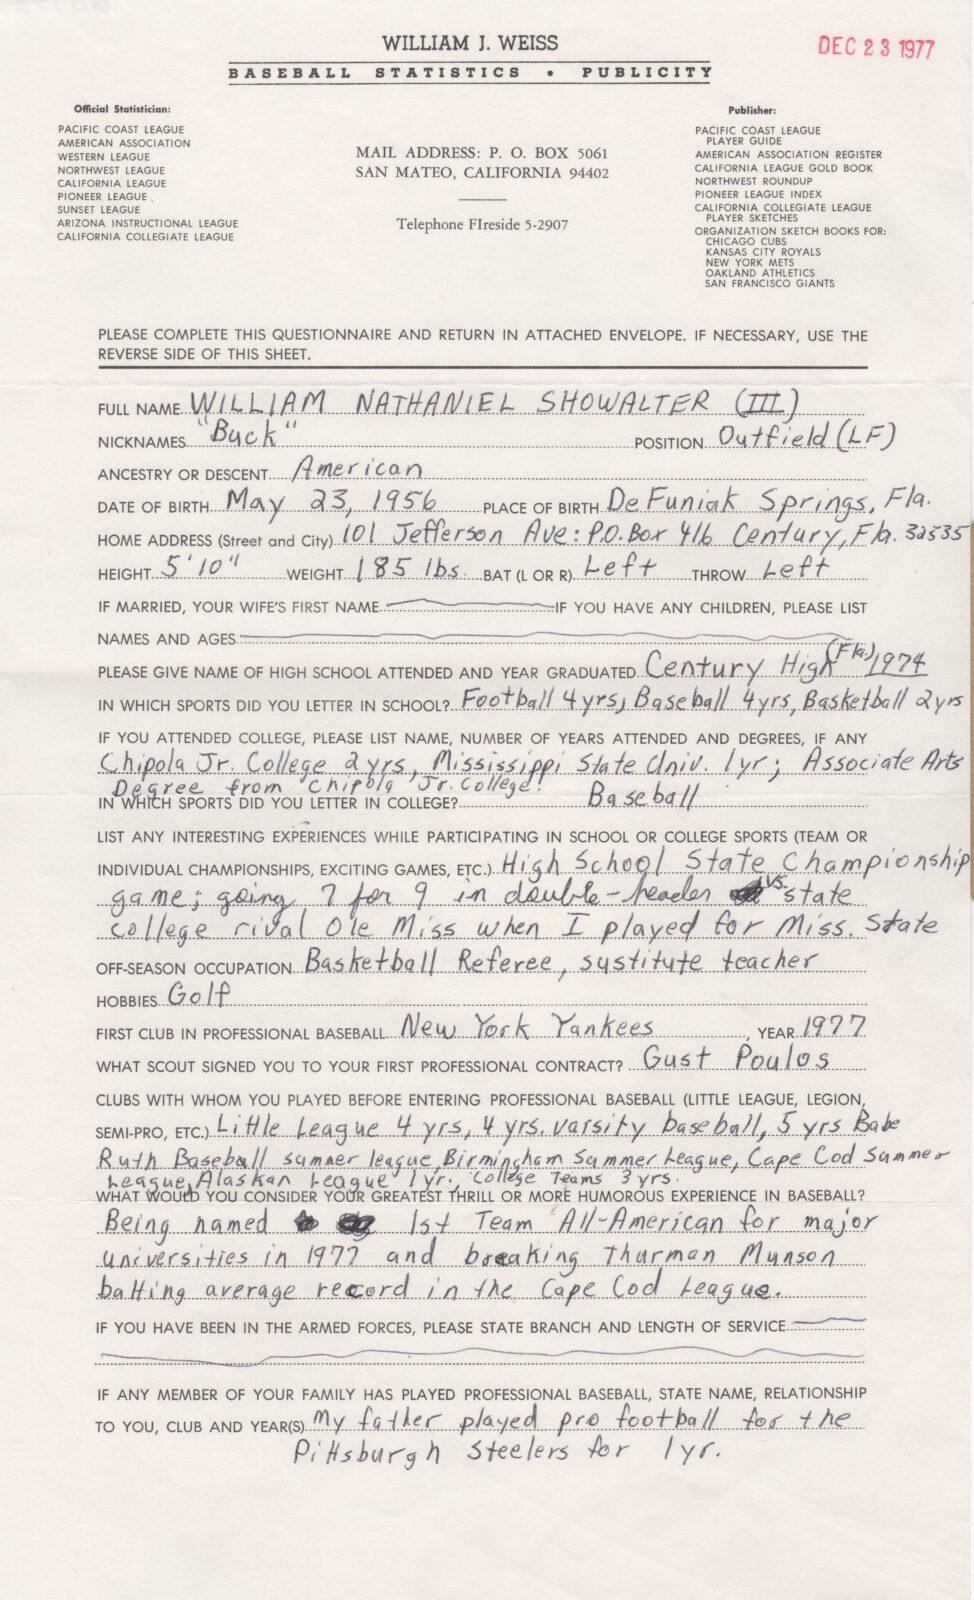 WILLIAM J. WEISS
DEC 23 1977
BASEBALL STATISTICS • PUBLICITY
Official Statistician:
PACIFIC COAST LEAGUE
AMERICAN ASSOCIATION
WESTERN LEAGUE
NORTHWEST LEAGUE
CALIFORNIA LEAGUE
PIONEER LEAGUE
SUNSET LEAGUE
ARIZONA INSTRUCTIONAL LEAGUE
CALIFORNIA COLLEGIATE LEAGUE
MAIL ADDRESS: P. O. BOX 5061
SAN MATEO, CALIFORNIA 94402
Telephone FIreside 5-2907
Publisher:
PACIFIC COAST LEAGUE
PLAYER GUIDE
AMERICAN ASSOCIATION REGISTER
CALIFORNIA LEAGUE GOLD BOOK
NORTHWEST ROUNDUP
PIONEER LEAGUE INDEX
CALIFORNIA COLLEGIATE LEAGUE
PLAYER SKETCHES
ORGANIZATION SKETCH BOOKS FOR:
CHICAGO CUBS
KANSAS CITY ROYALS
NEW YORK METS
OAKLAND ATHLETICS
SAN FRANCISCO GIANTS
PLEASE COMPLETE THIS QUESTIONNAIRE AND RETURN IN ATTACHED ENVELOPE. IF NECESSARY, USE THE
REVERSE SIDE OF THIS SHEET.
FULL NAME WILLIAM NATHANIEL SHOWALTER (III)
NICKNAMES "Buck" POSITION Outfield (LF)
ANCESTRY OR DESCENT American
DATE OF BIRTH May 23, 1956 PLACE OF BIRTH De Funiak Springs, Fla.
HOME ADDRESS (Street and City) 101 Jefferson Ave: P.O. Box 416 Century, Fla. 32535
HEIGHT 5'10" WEIGHT 185 lbs. BAT (L OR R) Left THROW Left
IF MARRIED, YOUR WIFE'S FIRST NAME IF YOU HAVE ANY CHILDREN, PLEASE LIST
NAMES AND AGES
PLEASE GIVE NAME OF HIGH SCHOOL ATTENDED AND YEAR GRADUATED Century High (Fla.) 1974
IN WHICH SPORTS DID YOU LETTER IN SCHOOL? Football 4 yrs, Baseball 4 yrs, Basketball 2 yrs
IF YOU ATTENDED COLLEGE, PLEASE LIST NAME, NUMBER OF YEARS ATTENDED AND DEGREES, IF ANY
Chipola Jr. College 2 yrs, Mississippi State Univ. 1 yr; Associate Arts
Degree from Chipola Jr. College!
IN WHICH SPORTS DID YOU LETTER IN COLLEGE? Baseball
LIST ANY INTERESTING EXPERIENCES WHILE PARTICIPATING IN SCHOOL OR COLLEGE SPORTS (TEAM OR
INDIVIDUAL CHAMPIONSHIPS, EXCITING GAMES, ETC.) High School State Championship
game; going 7 for 9 in double-header vs. state
college rival Ole Miss when I played for Miss. State
OFF-SEASON OCCUPATION Basketball Referee, sustitute teacher
HOBBIES Golf
FIRST CLUB IN PROFESSIONAL BASEBALL New York Yankees, YEAR 1977
WHAT SCOUT SIGNED YOU TO YOUR FIRST PROFESSIONAL CONTRACT? Gust Poulos
CLUBS WITH WHOM YOU PLAYED BEFORE ENTERING PROFESSIONAL BASEBALL (LITTLE LEAGUE, LEGION,
SEMI-PRO, ETC.) Little League 4 yrs, 4 yrs. varsity baseball, 5 yrs Babe
Ruth Baseball summer league, Birmingham Summer League, Cape Cod Summer
League, Alaskan League 1 yr., College Teams 3 yrs.
WHAT WOULD YOU CONSIDER YOUR GREATEST THRILL OR MORE HUMOROUS EXPERIENCE IN BASEBALL?
Being named 1st Team All-American for major
universities in 1977 and breaking Thurman Munson
batting average record in the Cape Cod League.
IF YOU HAVE BEEN IN THE ARMED FORCES, PLEASE STATE BRANCH AND LENGTH OF SERVICE
IF ANY MEMBER OF YOUR FAMILY HAS PLAYED PROFESSIONAL BASEBALL, STATE NAME, RELATIONSHIP
TO YOU, CLUB AND YEAR(S) My father played pro football for the
Pittsburgh Steelers for 1 yr.